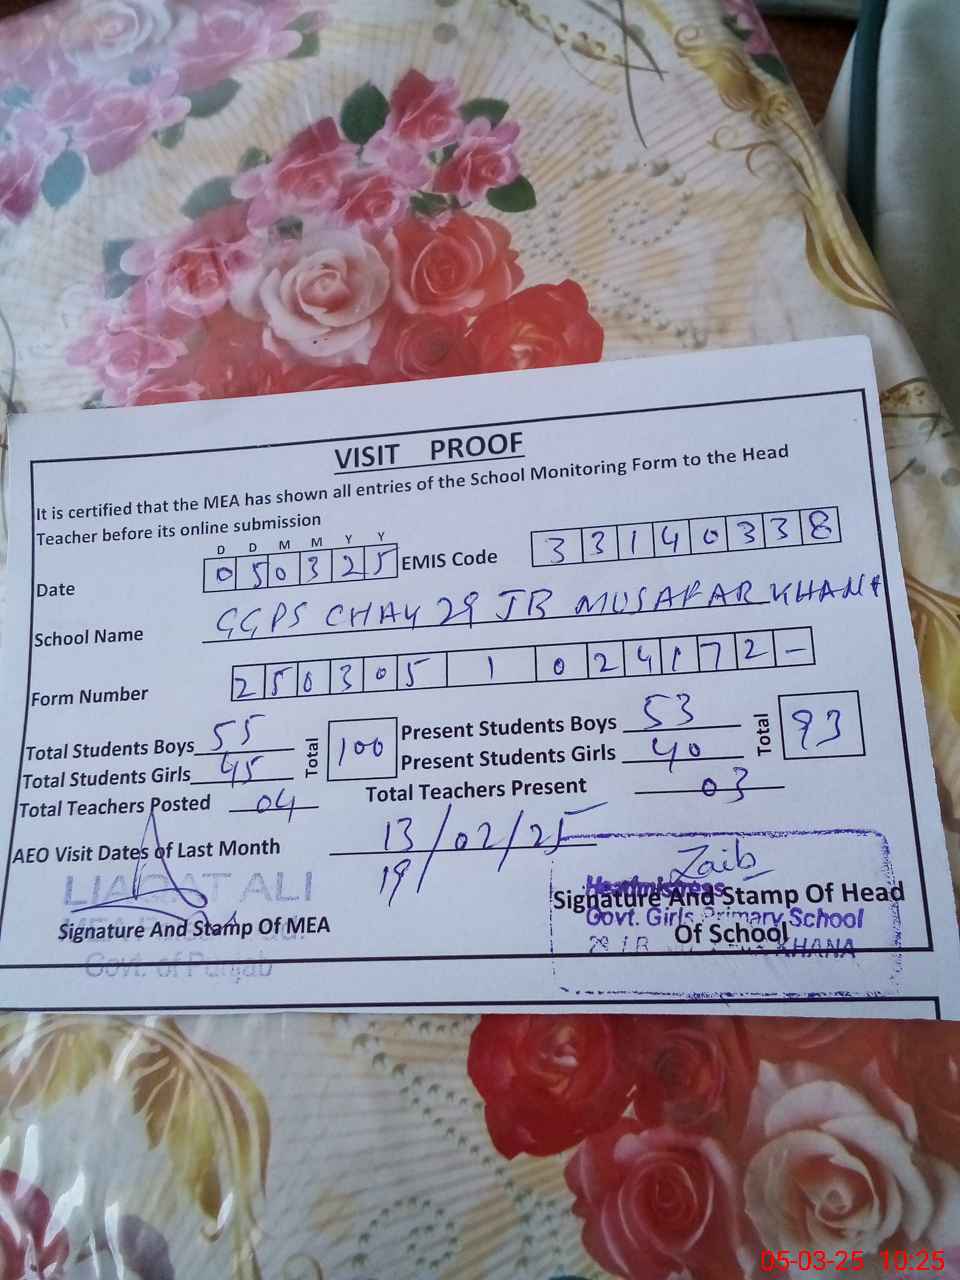 VISIT PROOF
It is certified that the MEA has shown all entries of the School Monitoring Form to the Head
Teacher before its online submission
D D M M Y Y
Date 0 5 0 3 2 5 EMIS Code 3 3 1 4 0 3 3 8
School Name GGPS CHAK 29 JB MUSAFAR KHANA
Form Number 2 5 0 3 0 5 1 0 2 4 1 7 2 -
Total Students Boys 55 Total 100 Present Students Boys 53 Total 93
Total Students Girls 45 Present Students Girls 40
Total Teachers Posted 04 Total Teachers Present 03
AEO Visit Dates of Last Month 13/02/25
19/
Zaib
LIAQAT ALI
Headmistress
Signature And Stamp Of Head
Govt. Girls Primary School
Signature And Stamp Of MEA
Of School
KHANA
Govt. of Punjab
05-03-25 10:25